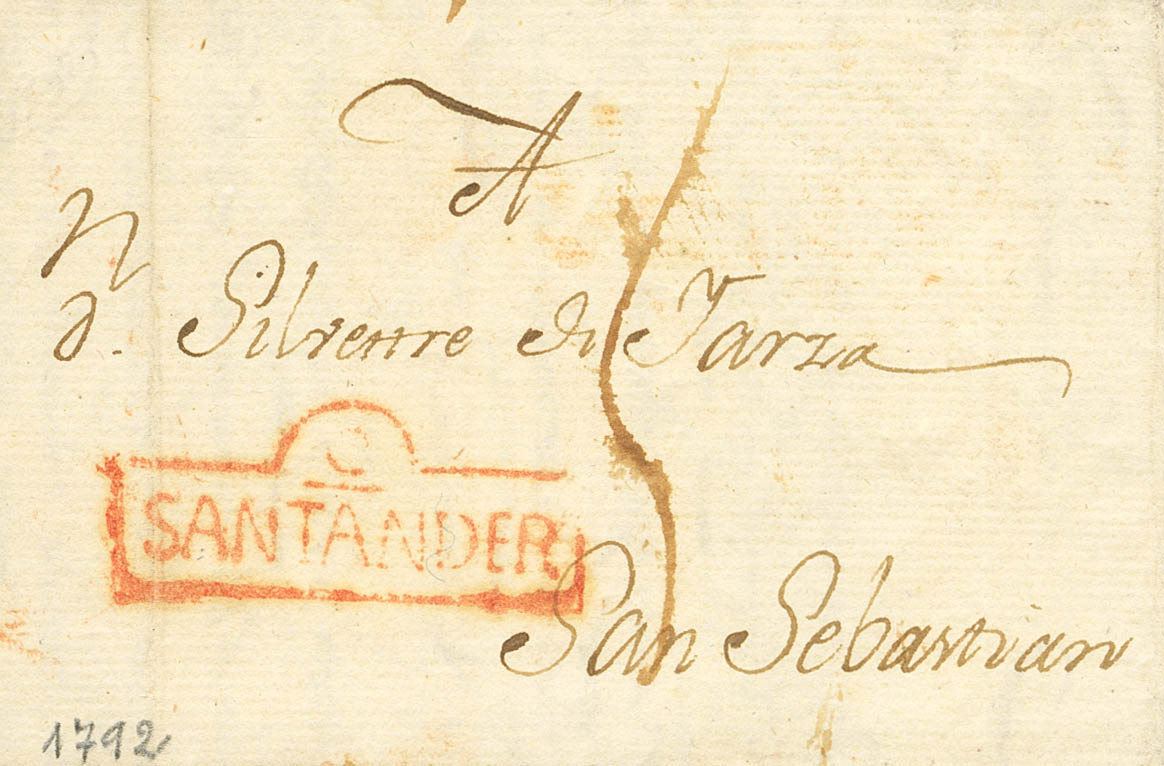 A
D.ⁿ Silvestre de Yarza
SANTANDER
San Sebastian
1792